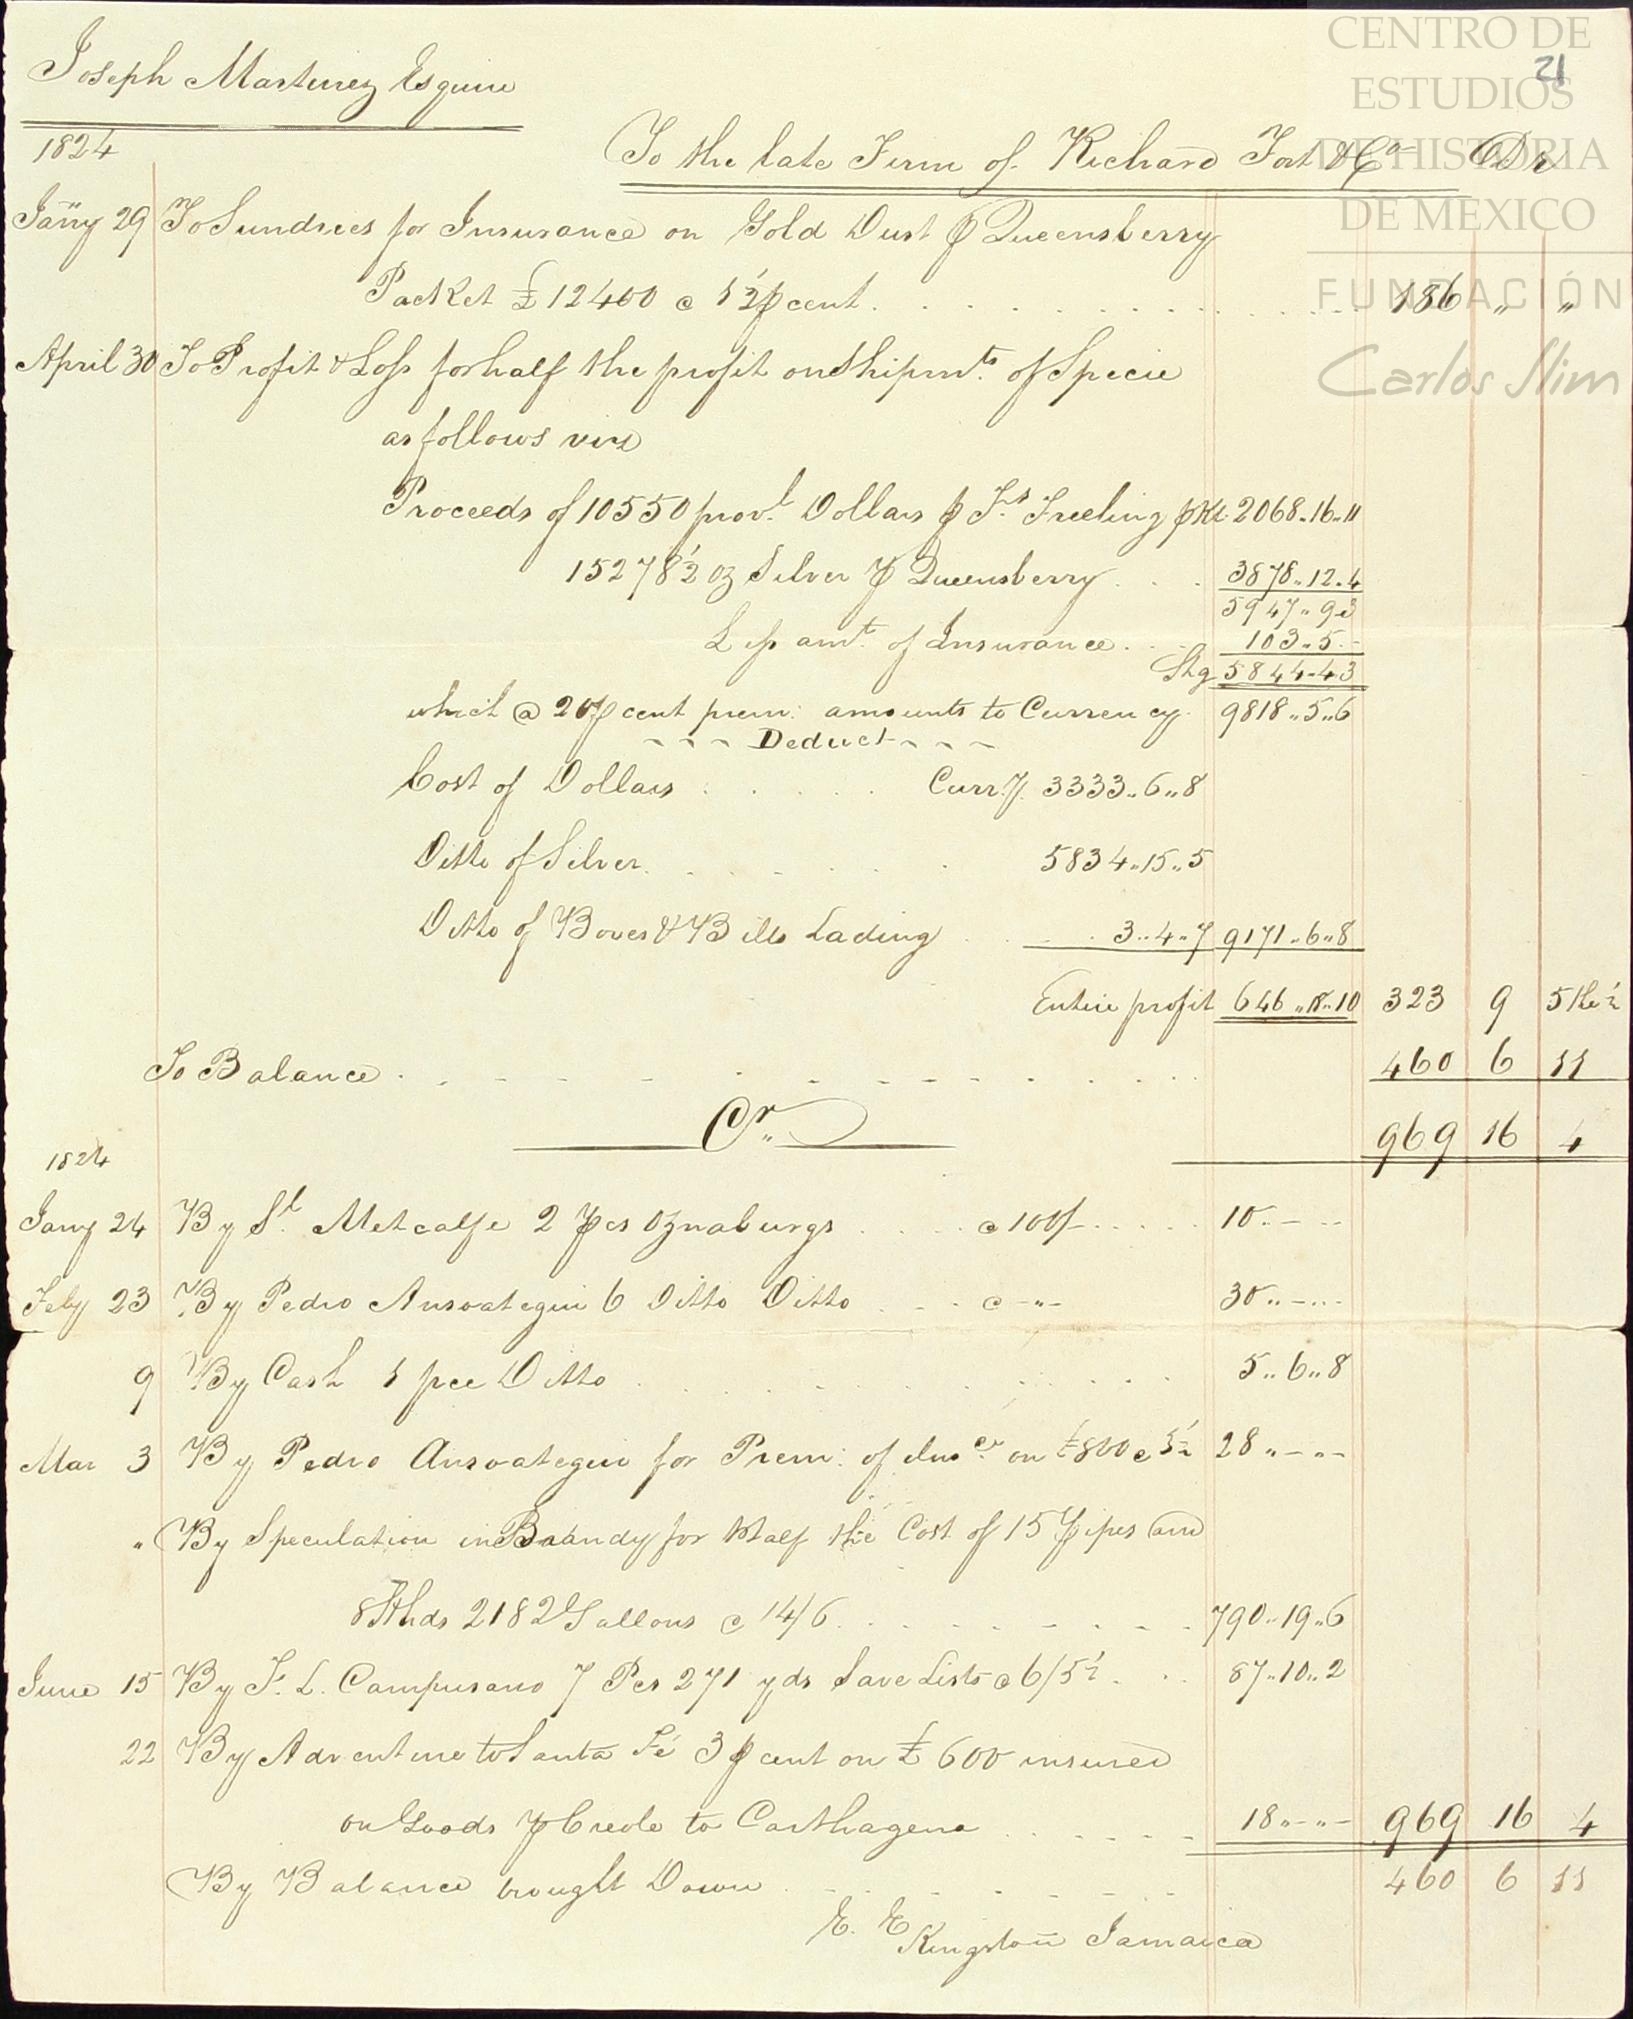 CENTRO DE
ESTUDIOS
DE HISTORIA
DE MEXICO
FUNDACIÓN
Carlos Slim
21
Joseph Martinez Esquire
1824
To the late Firm of Richard Fort & Co Dr
Jany 29 To Sundries for Insurance on Gold Dust ⅌ Queensberry
Packet £12400 @ 1½ ⅌ cent . . . 186 " "
April 30 To Profit & Loss for half the profit on Shipmts. of Specie
as follows viz
Proceeds of 10550 provl. Dollars ⅌ Fs. Freeling pkt 2068..16..11
15278½ oz Silver ⅌ Queensberry . . . 3878..12..4
5947..9..3
Less amt. of Insurance . . . 103..5..-
Stg 5844..4..3
which @ 20 ⅌ cent prem: amounts to Currency 9818..5..6
Deduct
Cost of Dollars . . . Curr.y. 3333..6..8
Ditto of Silver . . . 5834..15..5
Ditto of Boxes & Bills Lading . . . 3..4..7 9171..6..8
Entire profit 646..18..10 323 9 5 the ½
To Balance . . . 460 6 11
969 16 4
Cr.
1824
Jany 24 By St. Metcalfe 2 pcs Oznaburgs . . . @ 100/- . . . 10..-..-
Feby 23 By Pedro Ansoategui 6 Ditto Ditto . . . @ -"- 30..-..-
9 By Cash 1 pce Ditto . . . 5..6..8
Mar 3 By Pedro Ansoategui for Prem: of Insce. on £800 @ 3½ 28..-..-
" By Speculation in Brandy for half the Cost of 15 Pipes and
8 Hhds 2182 Gallons @ 14/6 . . . 790..19..6
June 15 By F. L. Campusano 7 Pcs 271 yds Save Lists @ 6/5½ . . . 87..10..2
22 By Adventure to Santa Fé 3 ⅌ cent on £600 insured
on Goods ⅌ Creole to Carthagena . . . 18..-..- 969 16 4
By Balance brought Down . . . 460 6 11
E. E
Kingston Jamaica